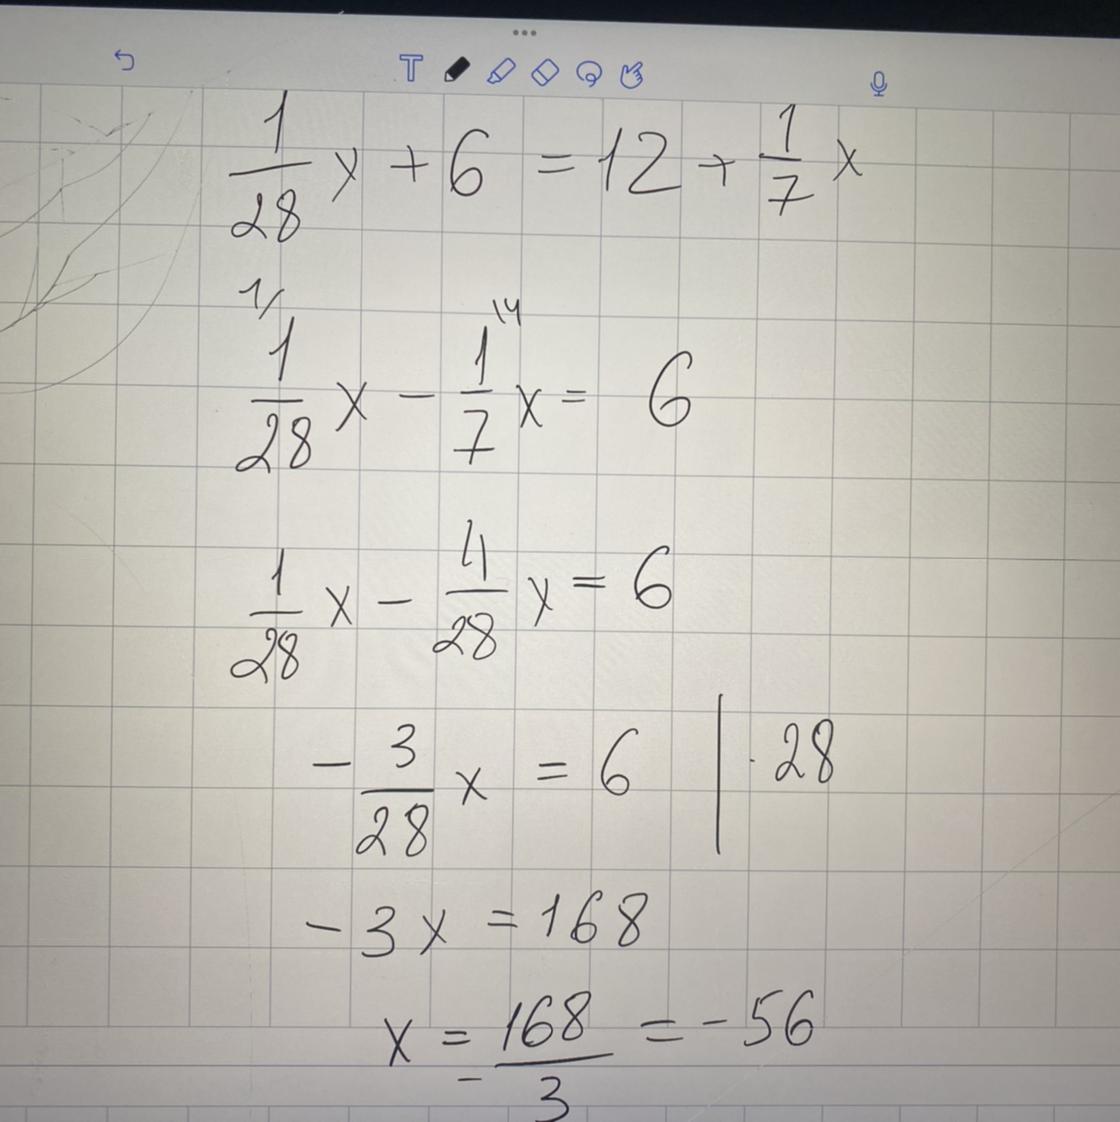 1/28 x + 6 = 12 + 1/7 x
1/ 14
1/28 x - 1/7 x = 6
1/28 x - 4/28 x = 6
- 3/28 x = 6 | · 28
- 3x = 168
x = 168/-3 = -56